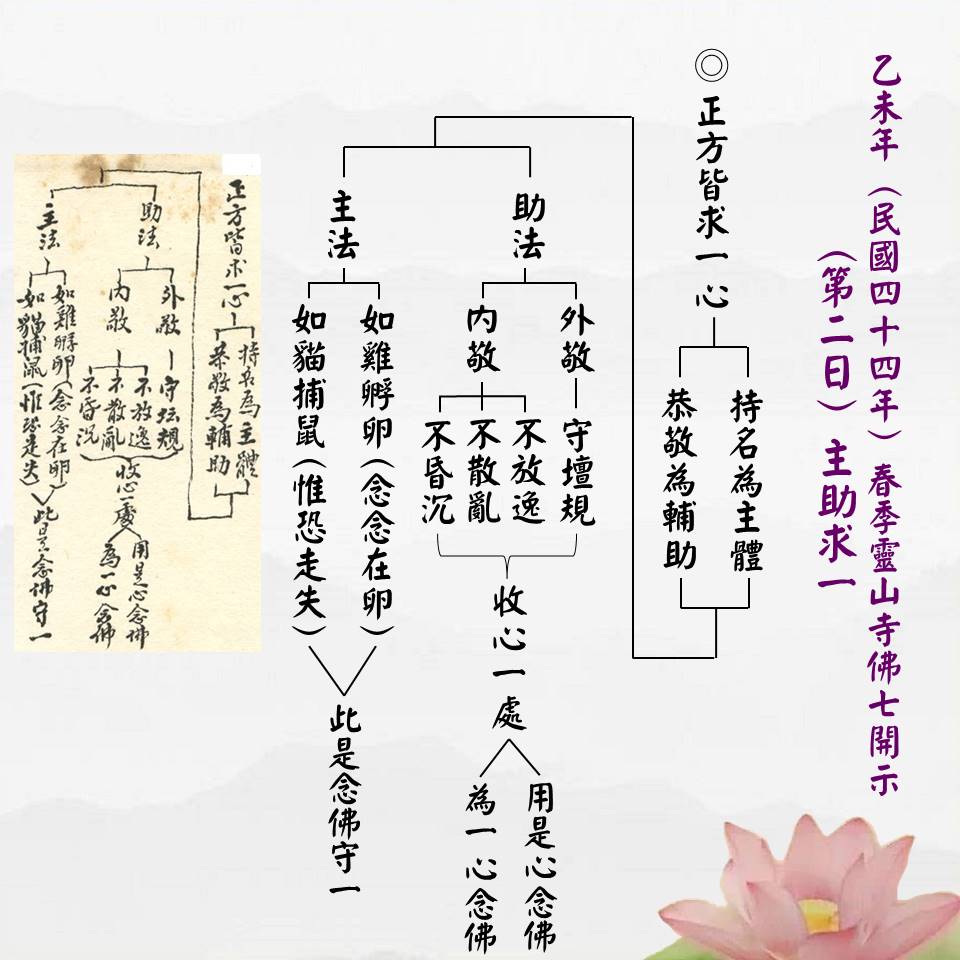 乙未年（民國四十四年）春季靈山寺佛七開示
（第二日）主助求一
◎正方皆求一心
持名為主體
恭敬為輔助
助法
外敬
守壇規
內敬
不放逸
不散亂
不昏沉
收心一處
用是心念佛
為一心念佛
主法
如雞孵卵（念念在卵）
如貓捕鼠（惟恐走失）
此是念佛守一
正方皆求一心
持名為主體
恭敬為輔助
助法
外敬
守坛規
內敬
不放逸
不散亂
不昏沉
收心一處
用是心念佛
為一心念佛
主法
如雞孵卵（念念在卵）
如貓捕鼠（惟恐走失）
此是念佛守一